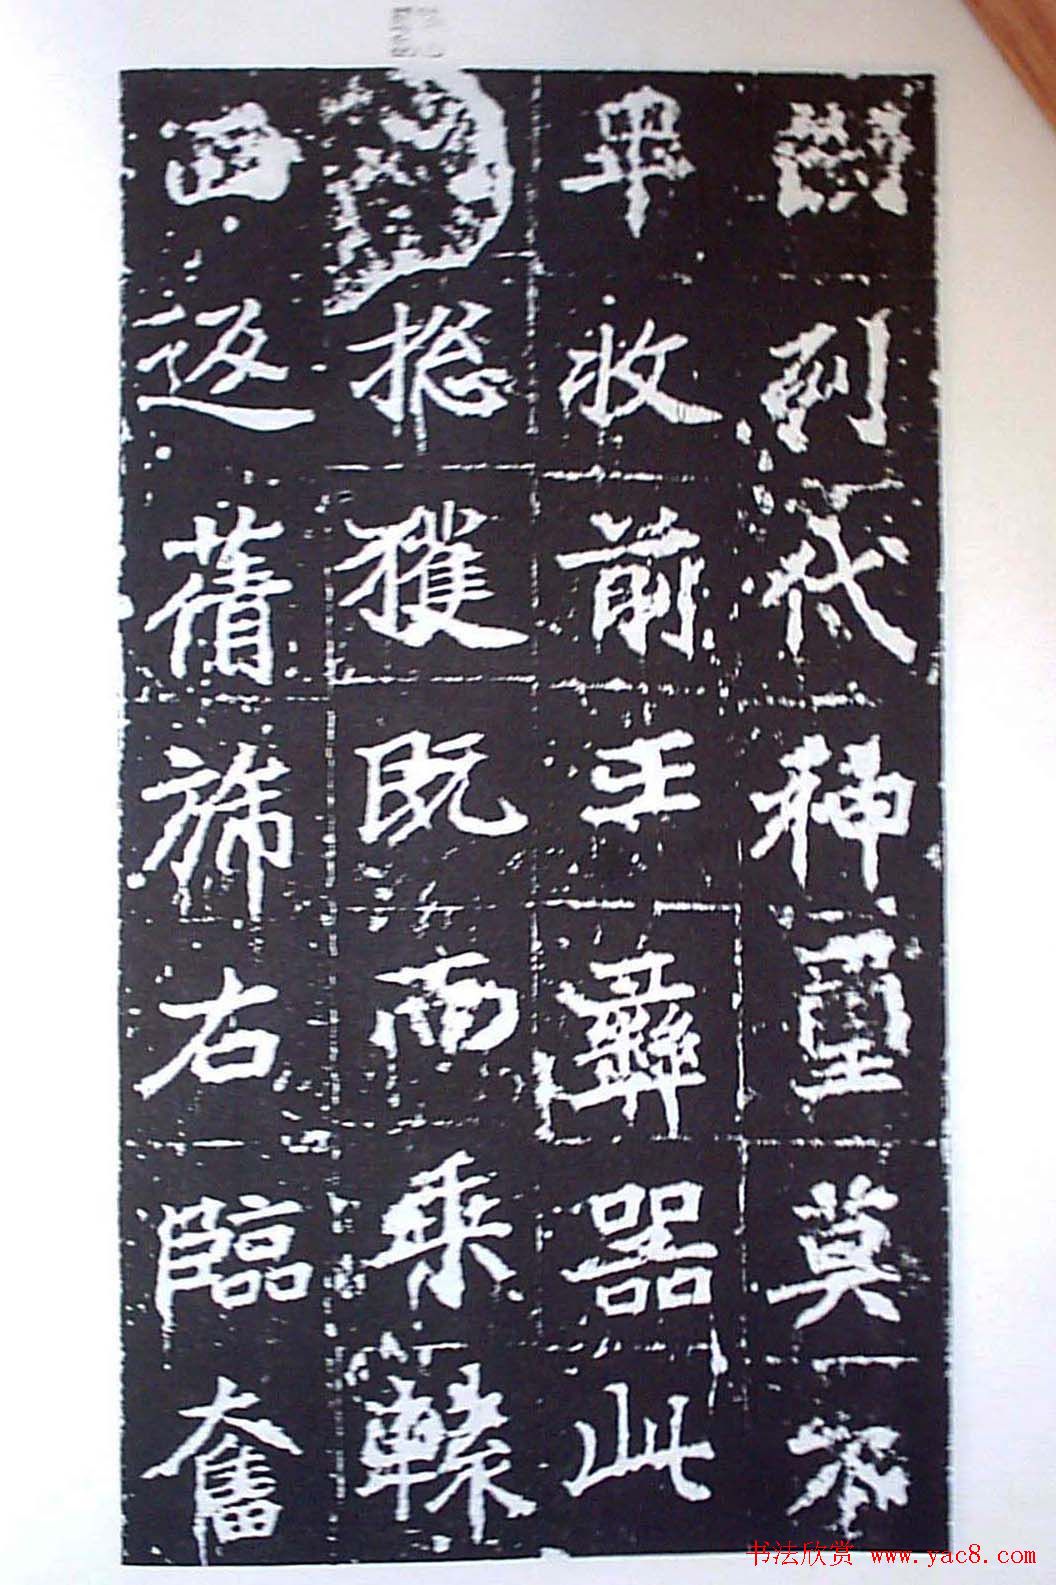 列代神璽莫不
畢收前王彝器此
揔獲既而乘轅
西返蒨旆右臨奮
书法欣赏 www.yac8.com